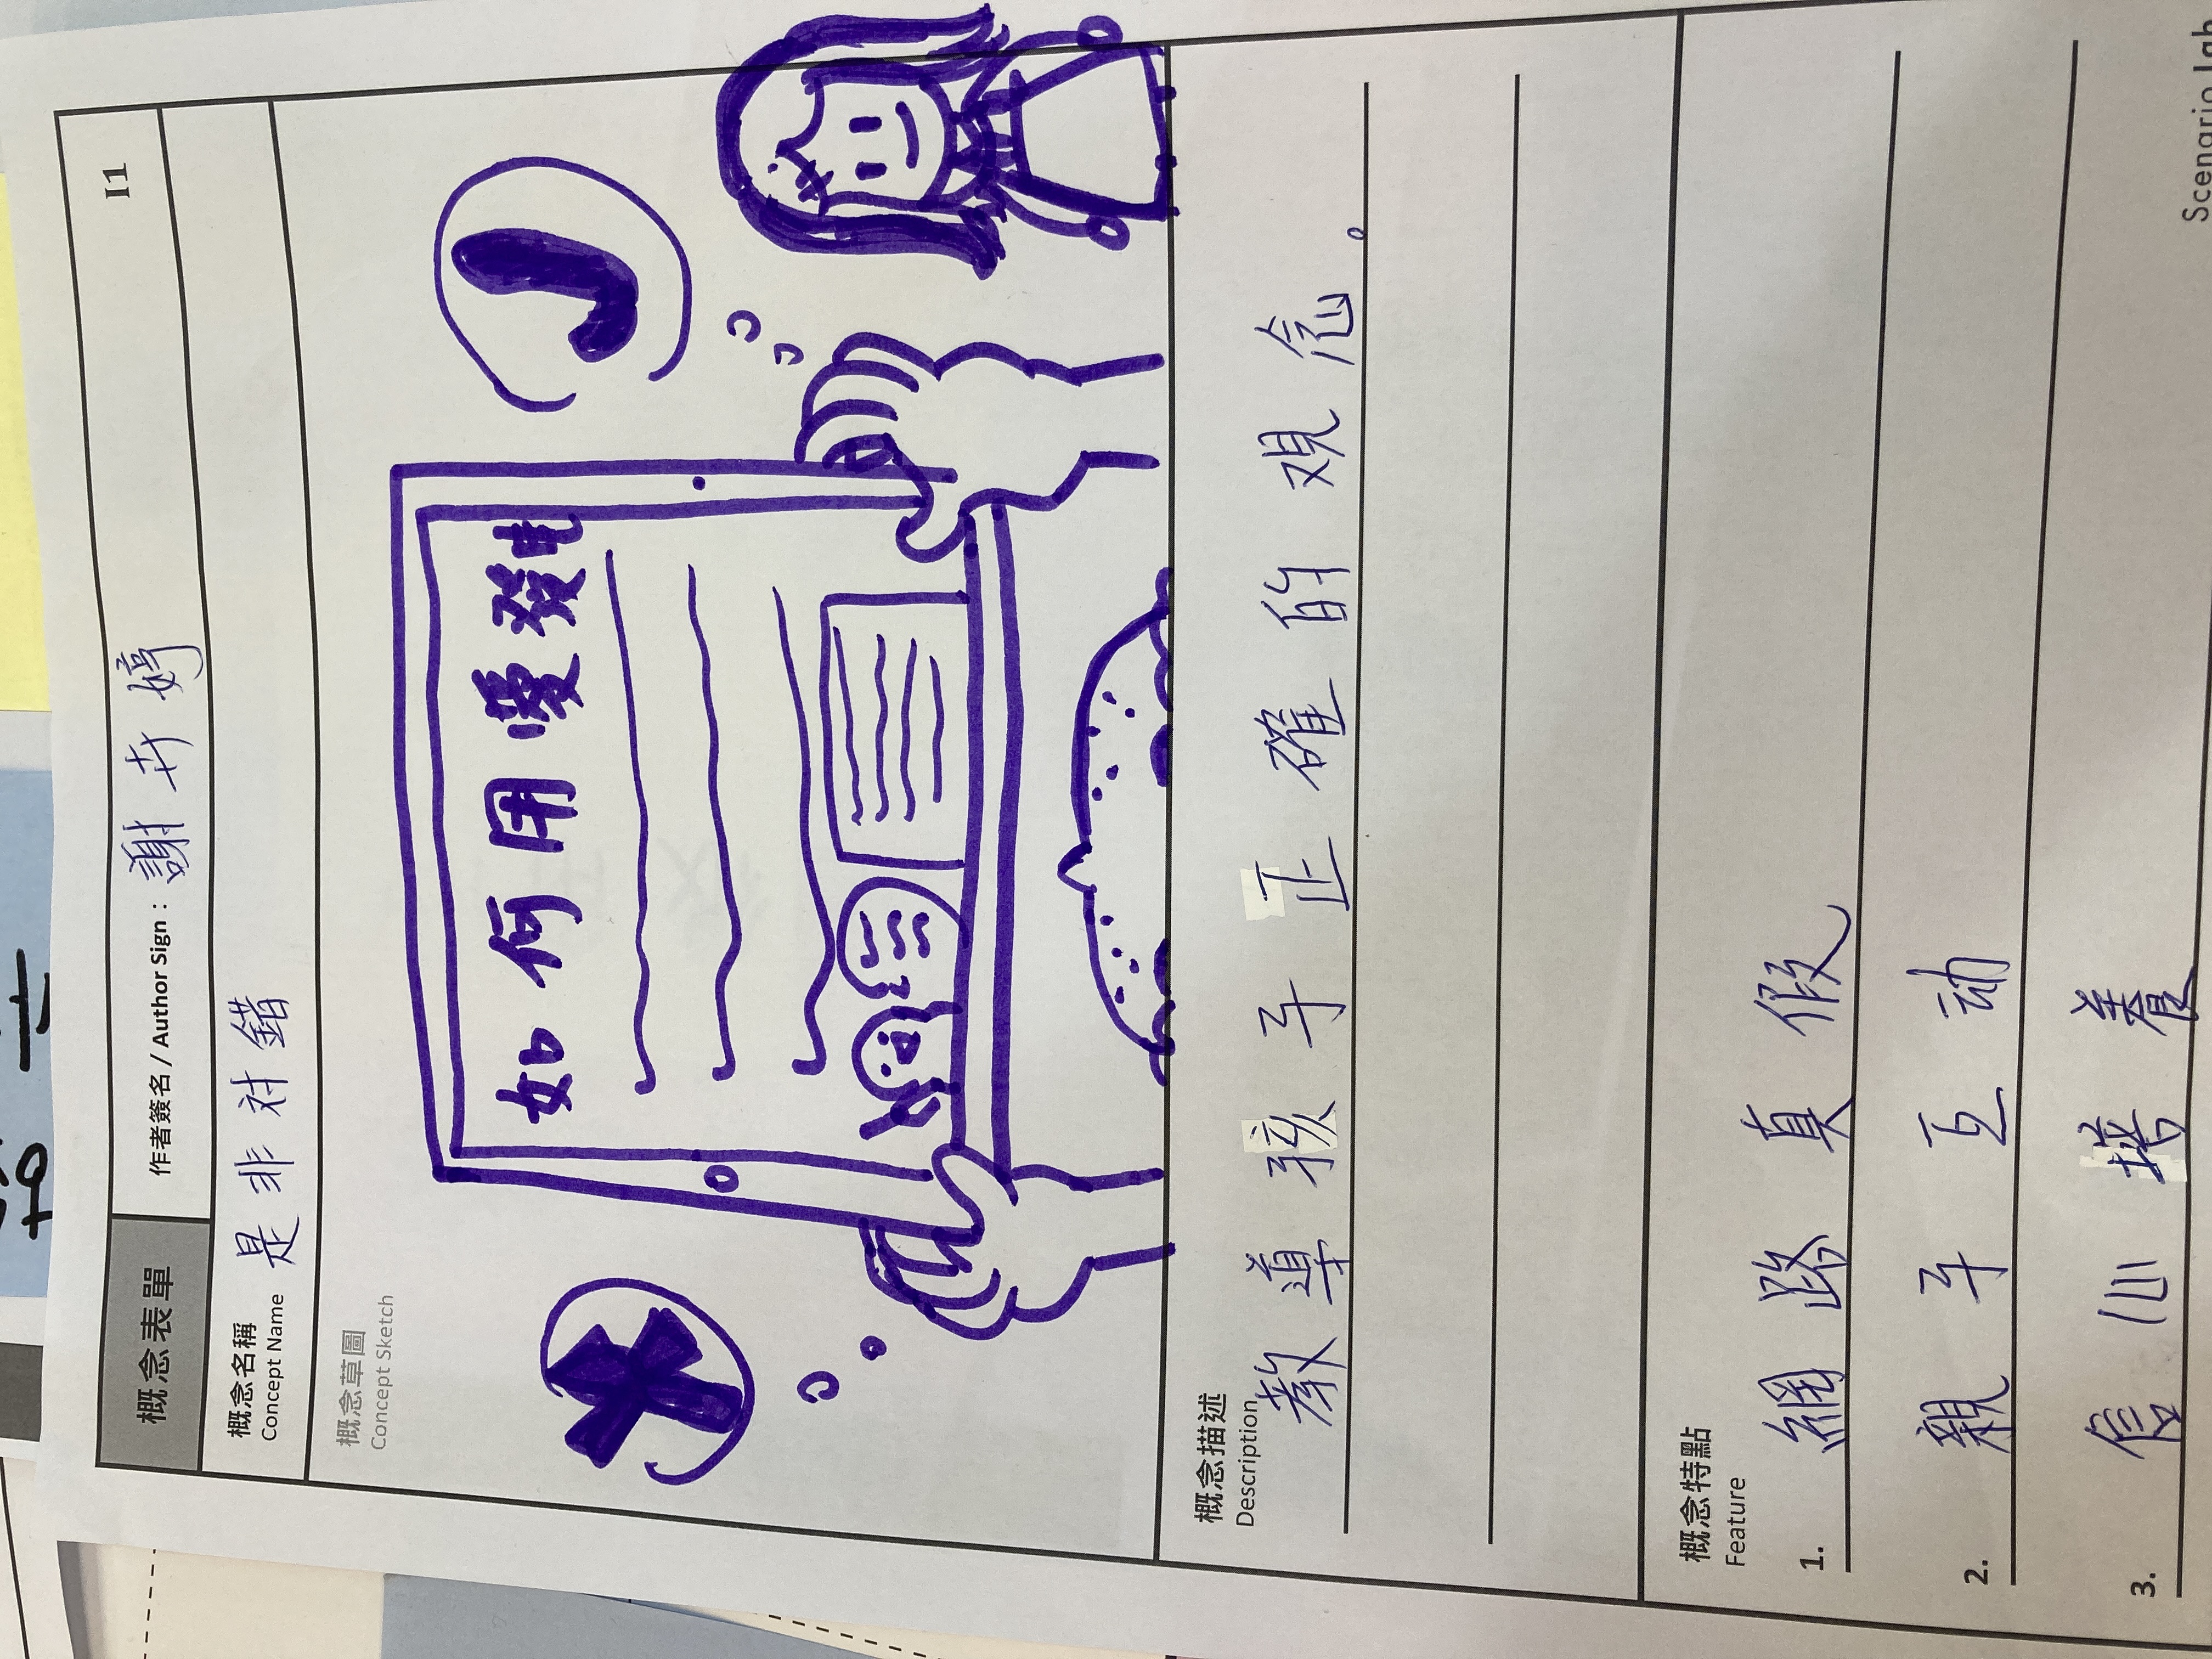 I1
概念表單
作者簽名 / Author Sign： 謝卉婷
概念名稱 是非対錯
Concept Name
概念草圖
Concept Sketch
如何用愛發電
概念描述
Description
教導孩子正確的观念。
概念特點
Feature
1. 網路真假
2. 親子互动
3. 信心培養
Scenario Lab